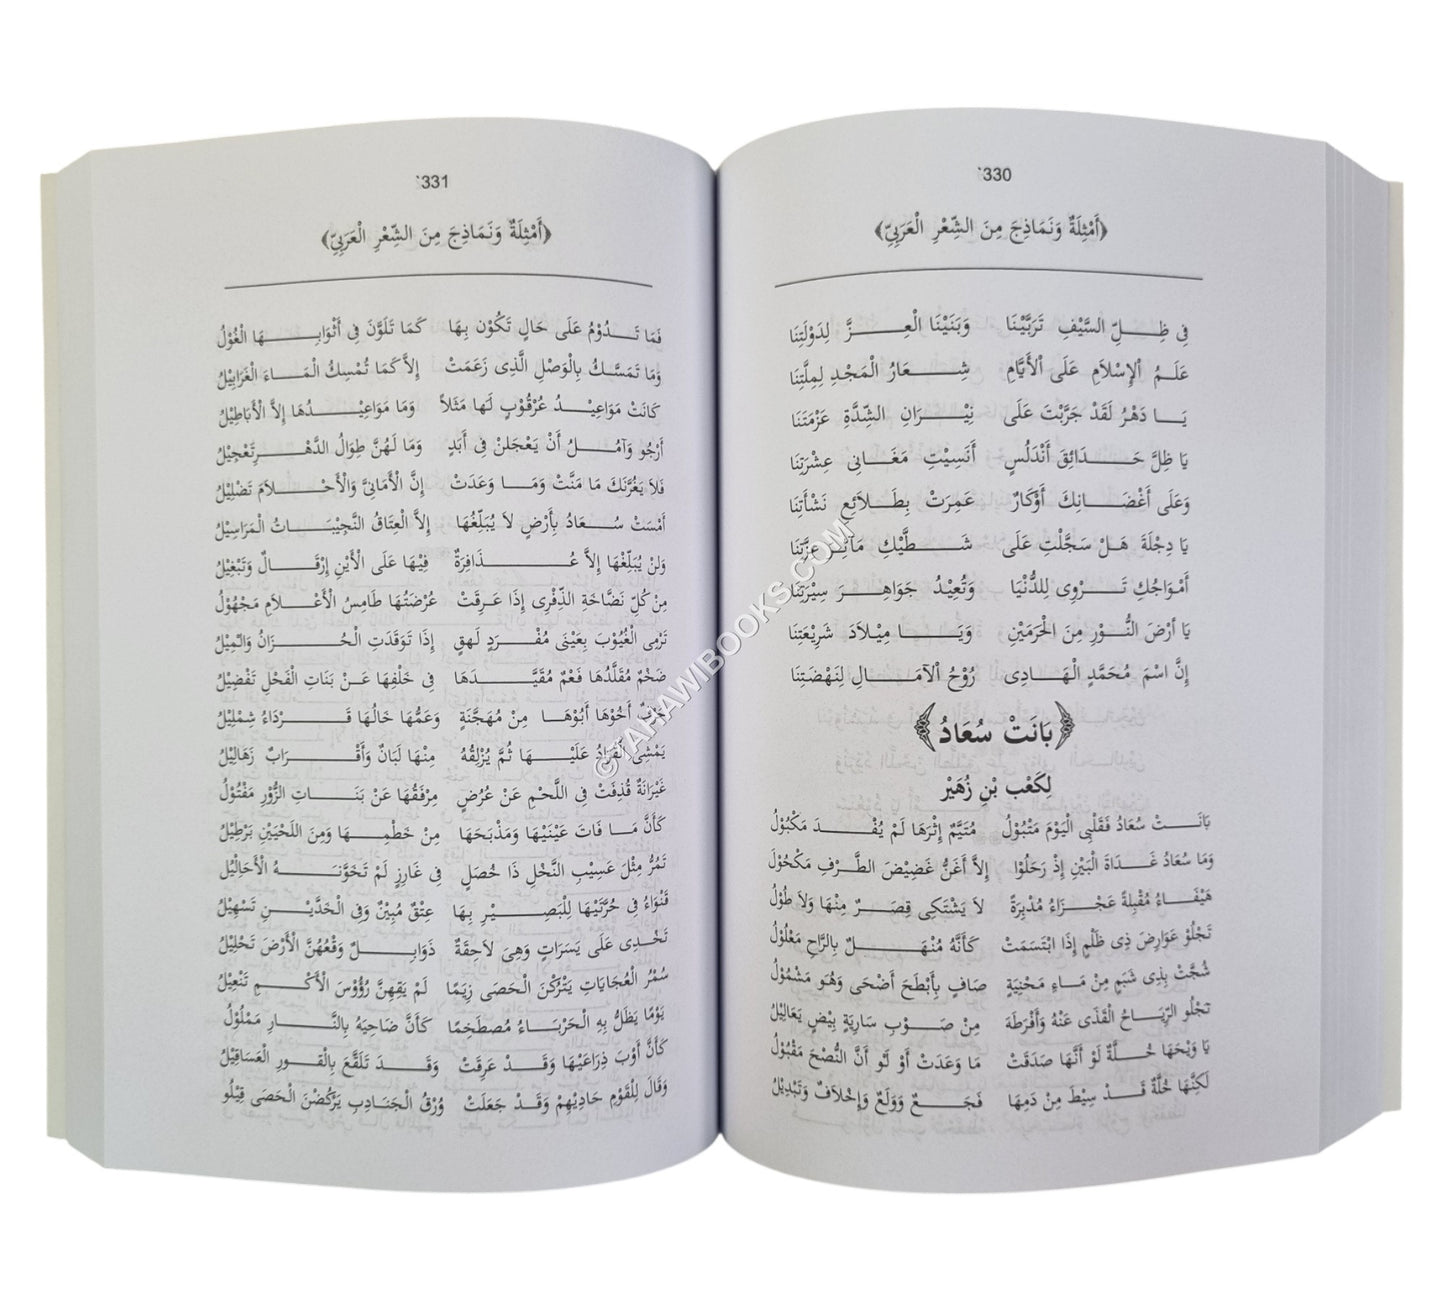 330`
﴿أَمْثِلَةٌ وَنَمَاذِجَ مِنَ الشِّعْرِ الْعَرَبِيِّ﴾
فِى ظِلِّ السَّيْفِ تَرَبَّيْنَا وَبَنَيْنَا الْعِــزَّ لِدَوْلَتِنَا
عَلَمُ اْلإِسْلاَمِ عَلَى اْلأَيَّامِ شِعَارُ الْمَجْدِ لِمِلَّتِنَا
يَا دَهْرُ لَقَدْ جَرَّبْتَ عَلَى نِيْرَانِ الشِّدَّةِ عَزْمَتَنَا
يَا ظِلَّ حَدَائِقِ أَنْدَلُسٍ أَنَسِيْتِ مَغَانِى عِشْرَتِنَا
وَعَلَى أَغْصَانِكَ أَوْكَارٌ عَمِرَتْ بِطَلاَئِعِ نَشْأَتِنَا
يَا دِجْلَةَ هَلْ سَجَّلْتِ عَلَى شَطَّيْكِ مَآثِرَ عِزَّتِنَا
أَمْوَاجُكِ تَرْوِى لِلدُّنْيَا وَتُعِيْدُ جَوَاهِرَ سِيْرَتِنَا
يَا أَرْضَ النُّوْرِ مِنَ الْحَرَمَيْنِ وَيَا مِيْلاَدَ شَرِيْعَتِنَا
إِنَّ اسْمَ مُحَمَّدٍ الْهَادِى رُوْحُ اْلآمَالِ لِنَهْضَتِنَا
﴿بَانَتْ سُعَادُ﴾
لِكَعْبِ بْنِ زُهَيْرٍ
بَانَتْ سُعَادُ فَقَلْبِى الْيَوْمَ مَتْبُوْلُ مُتَيَّمٌ إِثْرَهَا لَمْ يُفْدَ مَكْبُوْلُ
وَمَا سُعَادُ غَدَاةَ الْبَيْنِ إِذْ رَحَلُوْا إِلاَّ أَغَنُّ غَضِيْضَ الطَّرْفِ مَكْحُوْلُ
هَيْفَاءُ مُقْبِلَةً عَجْزَاءُ مُدْبِرَةً لاَ يَشْتَكِى قِصَرٌ مِنْهَا وَلاَ طُوْلُ
تَجْلُوْ عَوَارِضَ ذِى ظَلْمٍ إِذَا ابْتَسَمَتْ كَأَنَّهُ مُنْهَلٌ بِالرَّاحِ مَعْلُوْلُ
شُجَّتْ بِذِى شَبَمٍ مِنْ مَاءِ مَحْنِيَةٍ صَافٍ بِأَبْطَحَ أَضْحَى وَهُوَ مَشْمُوْلُ
تَجْلُو الرِّيَاحُ الْقَذَى عَنْهُ وَأَفْرَطَهُ مِنْ صَوْبِ سَارِيَةٍ بِيْضٍ يَعَالِيْلُ
يَا وَيْحَهَا خُلَّةٌ لَوْ أَنَّهَا صَدَقَتْ مَا وَعَدَتْ أَوْ لَوْ أَنَّ النُّصْحَ مَقْبُوْلُ
لَكِنَّهَا خُلَّةٌ قَدْ سِيْطَ مِنْ دَمِهَا فَجَعٌ وَوَلَعٌ وَإِخْلاَفٌ وَتَبْدِيْلُ
331`
﴿أَمْثِلَةٌ وَنَمَاذِجَ مِنَ الشِّعْرِ الْعَرَبِيِّ﴾
فَمَا تَدُوْمُ عَلَى حَالٍ تَكُوْن بِهَا كَمَا تَلَوَّنَ فِى أَثْوَابِهَا الْغُوْلُ
وَمَا تَمَسَّكُ بِالْوَصْلِ الَّذِى زَعَمَتْ إِلاَّ كَمَا تُمْسِكُ الْمَاءَ الْغَرَابِيْلُ
كَانَتْ مَوَاعِيْدُ عُرْقُوْبٍ لَهَا مَثَلاً وَمَا مَوَاعِيْدُهَا إِلاَّ الْأَبَاطِيْلُ
أَرْجُو وَآمُلُ أَنْ يَعْجَلْنَ فِى أَبَدٍ وَمَا لَهُنَّ طِوَالُ الدَّهْرِ تَعْجِيْلُ
فَلاَ يَغُرَّنَكَ مَا مَنَتْ وَمَا وَعَدَتْ إِنَّ الْأَمَانِيَّ وَالْأَحْلاَمَ تَضْلِيْلُ
أَمْسَتْ سُعَادُ بِأَرْضٍ لاَ يُبَلِّغُهَا إِلاَّ الْعِتَاقُ النَّجِيْبَاتُ الْمَرَاسِيْلُ
وَلَنْ يُبَلِّغَهَا إِلاَّ عُذَافِرَةٌ فِيْهَا عَلَى الْأَيْنِ إِرْقَالٌ وَتَبْغِيْلُ
مِنْ كُلِّ نَضَّاخَةِ الذِّفْرَى إِذَا عَرِقَتْ عُرْضَتُهَا طَامِسُ الْأَعْلاَمِ مَجْهُوْلُ
تَرْمِى الْغُيُوْبَ بِعَيْنَى مُفْرَدٍ لَهِقٍ إِذَا تَوَقَدَتِ الْحُزَانُ وَالْمِيْلُ
ضَخْمٌ مُقَلَّدُهَا فَعْمٌ مُقَيَّدَهَا فِى خَلْقِهَا عَنْ بَنَاتِ الْفَحْلِ تَفْضِيْلُ
أَخُوْهَا أَبُوْهَا مِنْ مُهَجَّنَةٍ وَعَمُّهَا خَالُهَا قَرْدَاءُ شِمْلِيْلُ
يَمْشِى الْقُرَادُ عَلَيْهَا ثُمَّ يُزْلِقُهُ مِنْهَا لَبَانٌ وَأَقْرَابٌ زَهَالِيْلُ
عَيْرَانَةٌ قُذِفَتْ فِى اللَّحْمِ عَنْ عُرُضٍ مِرْفَقُهَا عَنْ بَنَاتِ الزُّوْرِ مَفْتُوْلُ
كَأَنَّ مَا فَاتَ عَيْنَيْهَا وَمَذْبَحَهَا مِنْ خَطْمِهَا وَمِنَ اللَّحْيَيْنِ بَرْطِيْلُ
تَمُرُّ مِثْلَ عَسِيْبِ النَّخْلِ ذَا خُصَلٍ فِى غَارِزٍ لَمْ تَخَوَّنَهُ الْأَحَالِيْلُ
قَنْوَاءُ فِى حُرَّتَيْهَا لِلْبَصِيْرِ بِهَا عِتْقٌ مُبِيْنٌ وَفِى الْخَدَّيْنِ تَسْهِيْلُ
تَخْدِى عَلَى يَسَرَاتٍ وَهِىَ لاَحِقَةٌ ذَوَابِلٌ وَقْعُهُنَّ الْأَرْضَ تَحْلِيْلُ
سُمْرُ الْعُجَايَاتِ يَتْرُكْنَ الْحَصَى زِيَمًا لَمْ يَقِهِنَّ رُؤُوْسَ الْأَكْمِ تَنْعِيْلُ
يَوْمًا يَظَلُّ بِهِ الْحَرْبَاءُ مُصْطَخِمًا كَأَنَّ ضَاحِيَهُ بِالنَّارِ مَمْلُوْلُ
كَأَنَّ أَوْبَ ذِرَاعَيْهَا وَقَدْ عَرِقَتْ وَقَدْ تَلَفَّعَ بِالْقُورِ الْعَسَاقِيْلُ
وَقَالَ لِلْقَوْمِ حَادِيْهِمْ وَقَدْ جَعَلَتْ وُرْقُ الْجَنَادِبِ يَرْكُضْنَ الْحَصَى قِيْلُو
© TAHAWIBOOKS.COM